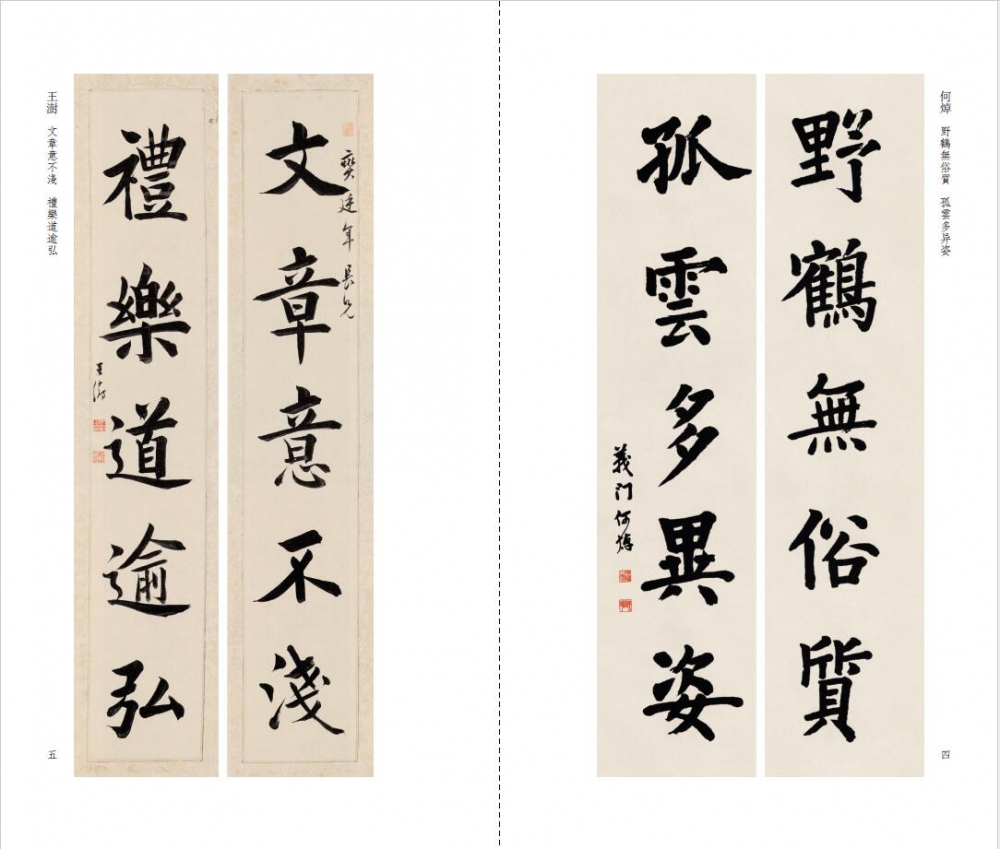 何焯 野鶴無俗質 孤雲多异姿
野鶴無俗質
孤雲多異姿
義门何焯
四
文章意不淺
年長兄
禮樂道逾弘
王澍
王澍 文章意不淺 禮樂道逾弘
五